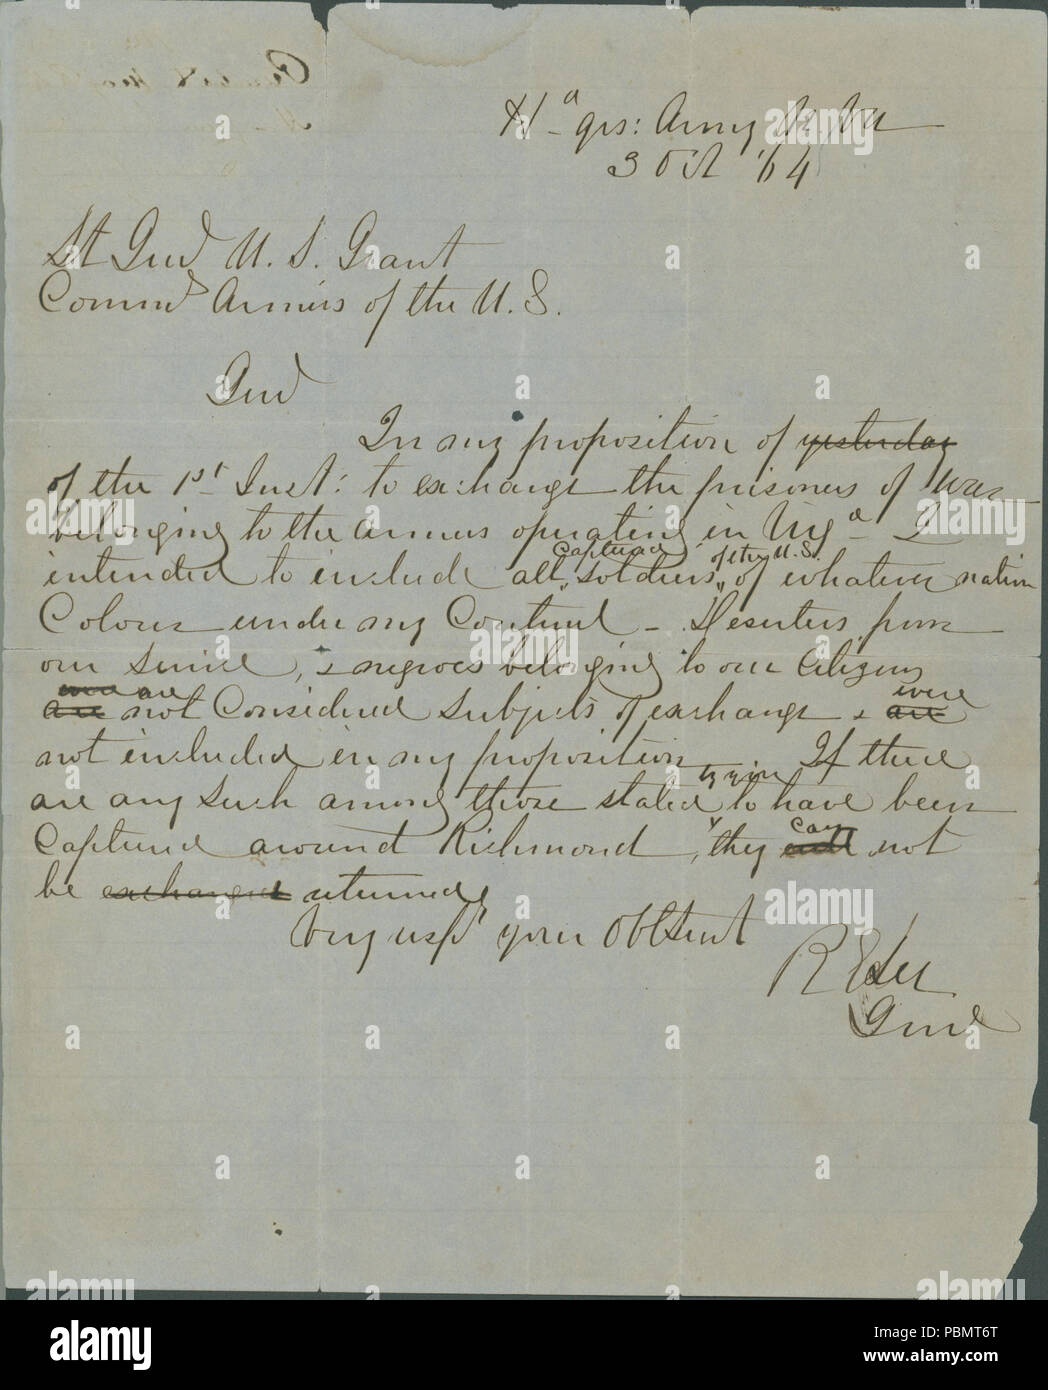 Hd qrs: Army N. Va
3 Oct '64
Lt Genl U. S. Grant
Commd Armies of the U. S.
Genl
In my proposition of yesterday
of the 1st Inst: to exchange the prisoners of war
belonging to the armies operating in Virga I
captured of the U.S.
intended to include all soldiers of whatever nation
Colour under my Control – Deserters from
our service, & negroes belonging to our citizens
were are were
are not Considered subjects of exchange & are
not included in my proposition If there
by you
are any such among those stated to have been
can
Captured around Richmond, they will not
be exchanged returned
Very respy your Obt Servt
R E Lee
Genl
alamy
Image ID: PBMT6T
www.alamy.com